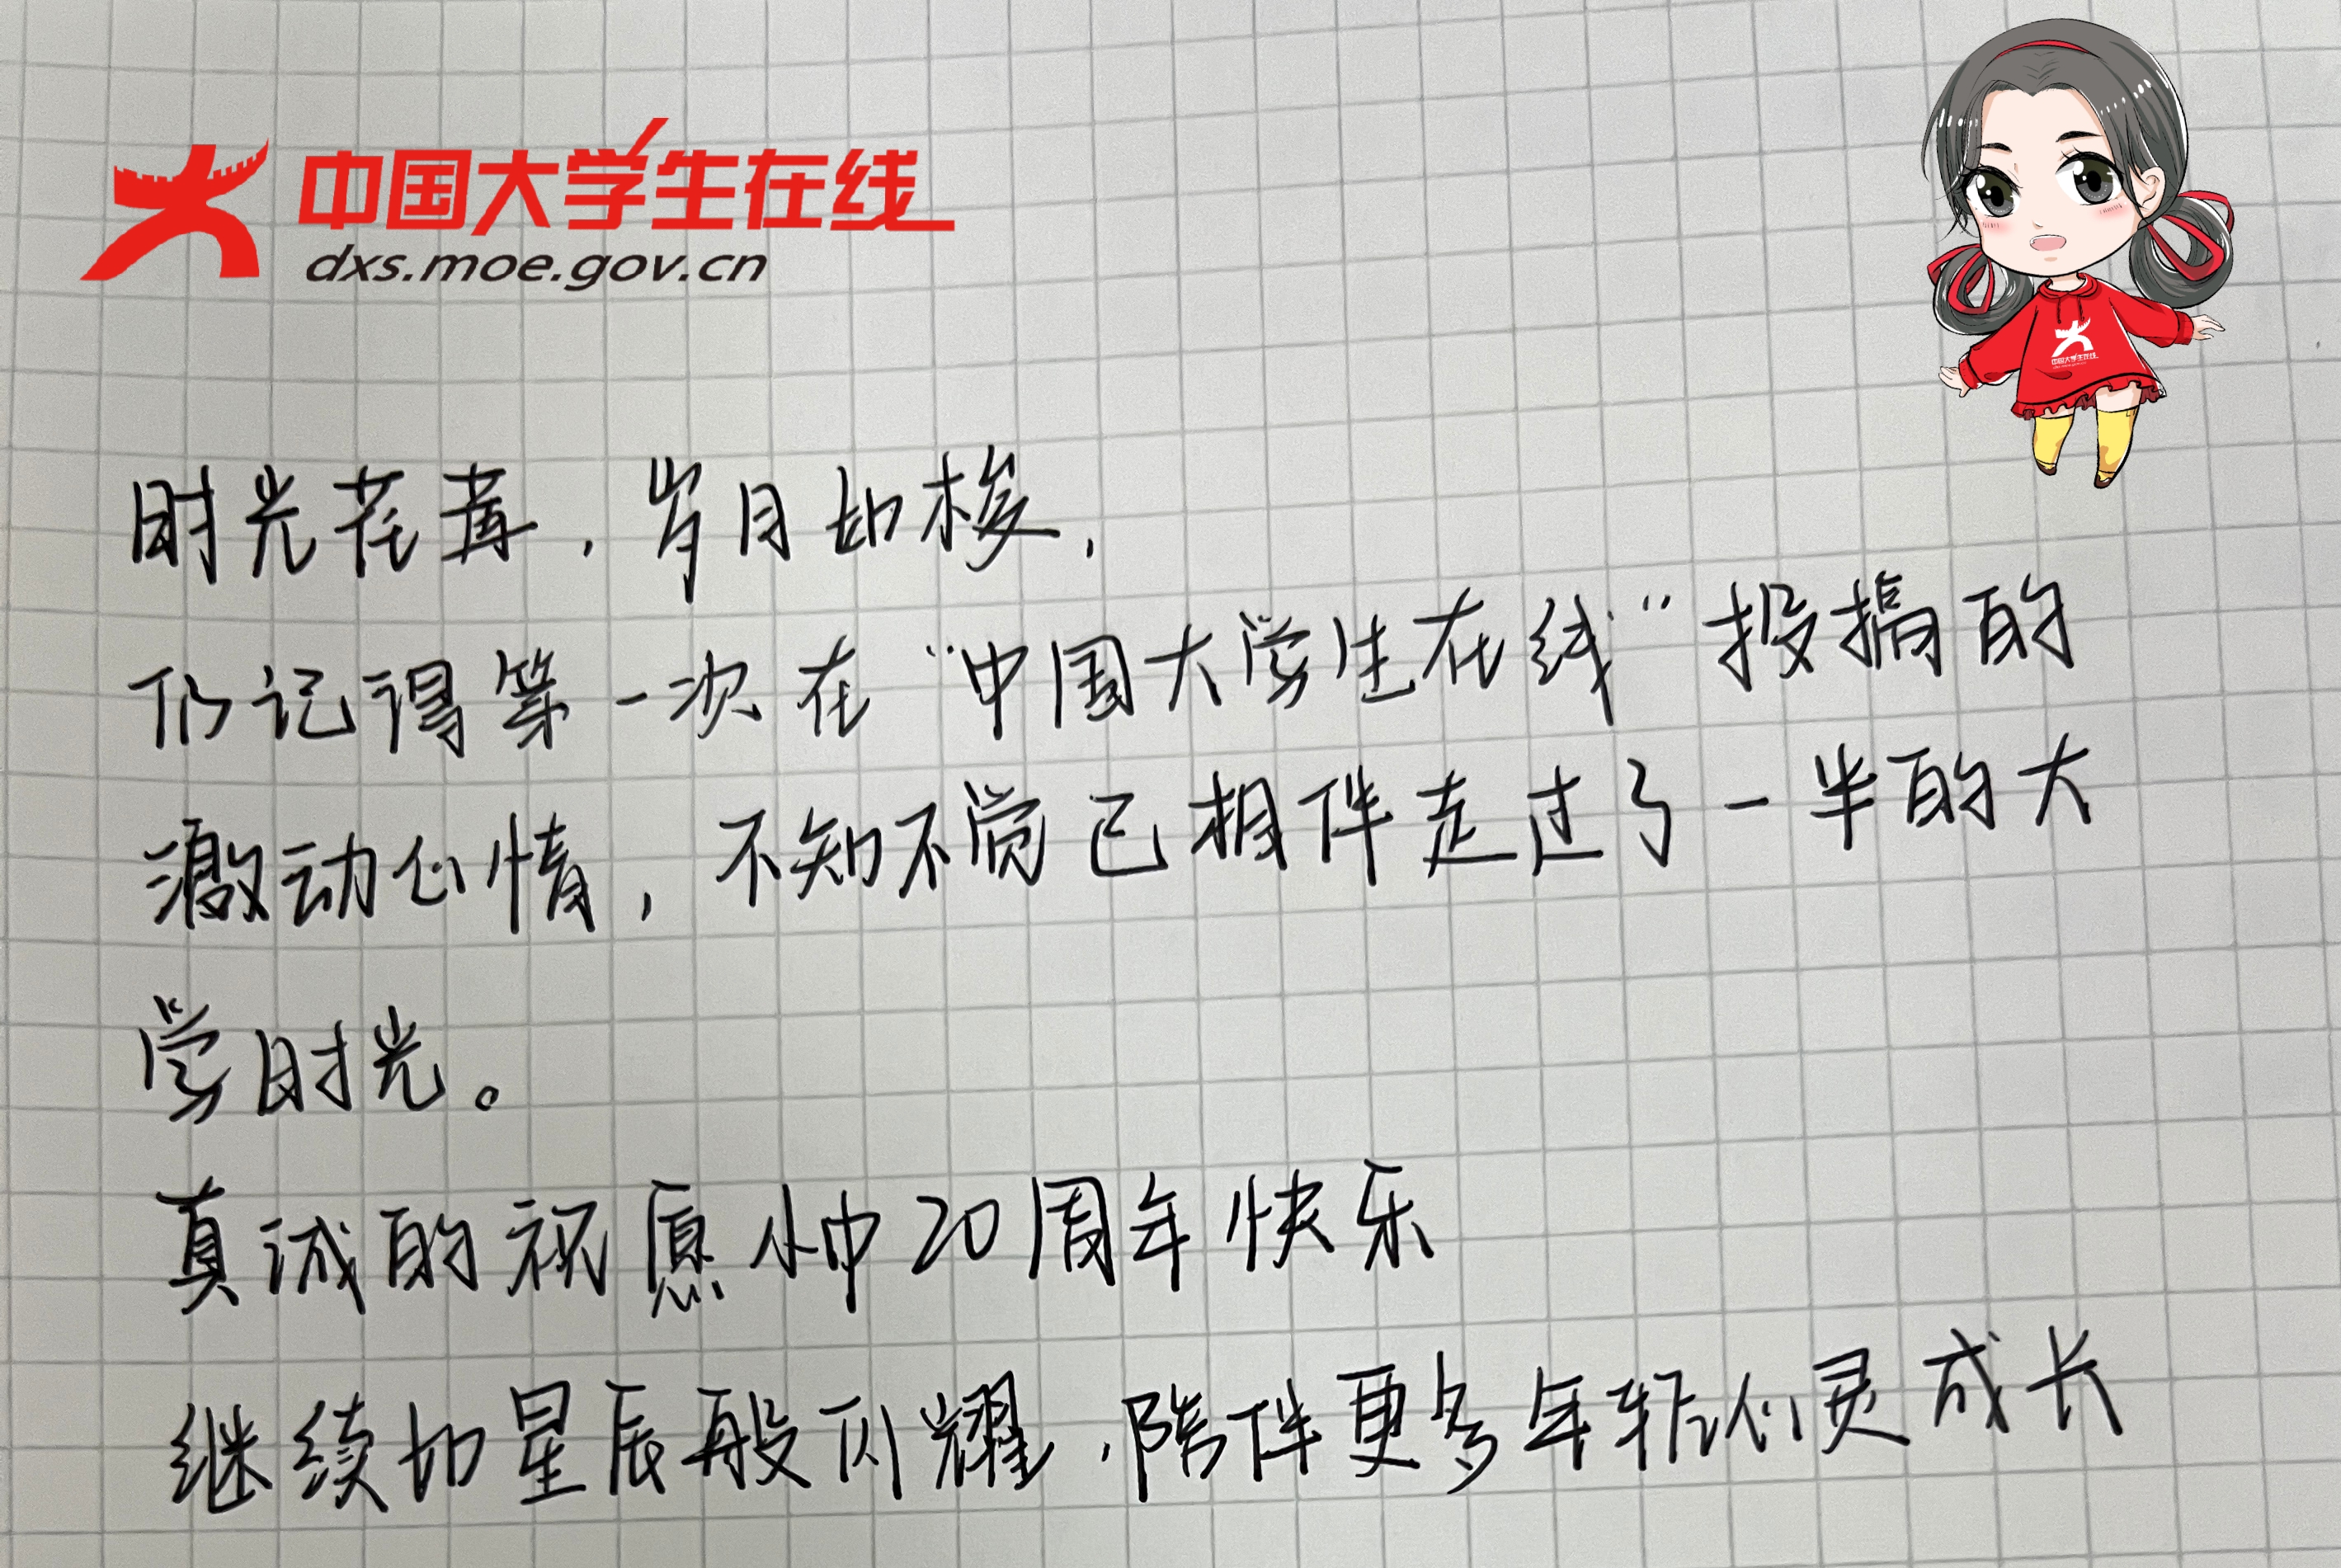 中国大学生在线
dxs.moe.gov.cn
时光荏苒，岁月如梭，
仍记得第一次在“中国大学生在线”投搞的
激动心情，不知不觉已相伴走过了一半的大
学时光。
真诚的祝愿小中20周年快乐
继续如星辰般闪耀，陪伴更多年轻心灵成长